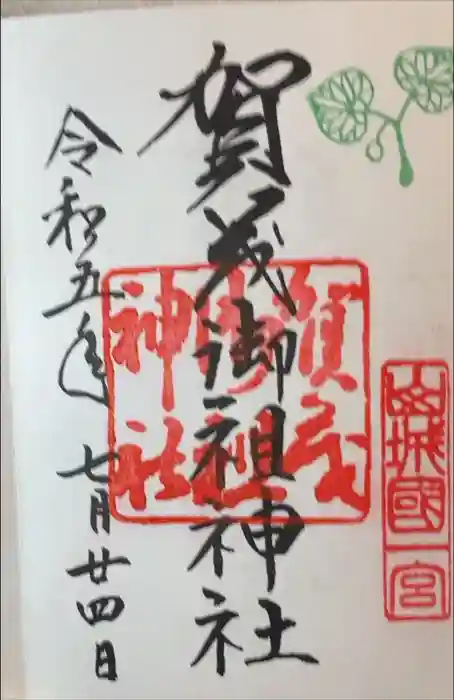 山城國一宮
賀茂御祖神社
賀茂御祖神社
令和五年七月廿四日